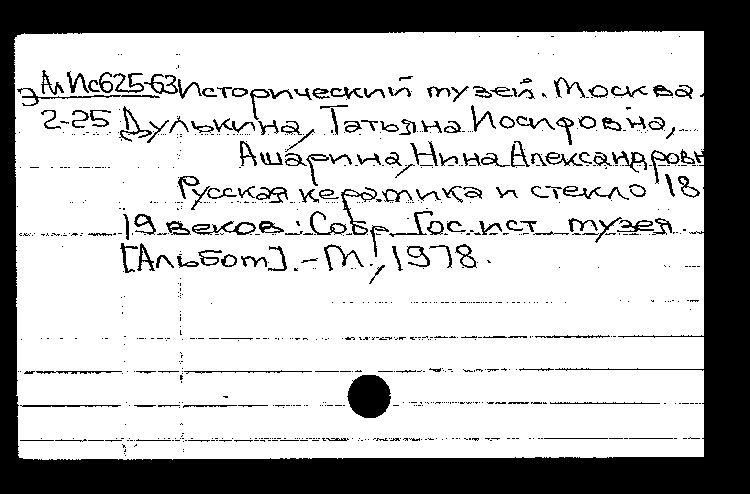 Э Ал Ис625-63 Исторический музей. Москва.
2-25 Дулькина, Татьяна Иосифовна,
Ашарина, Нина Александровн
Русская керамика и стекло 18-
19 веков: Собр. Гос. ист. музея.
[Альбом]. - М., 1978.